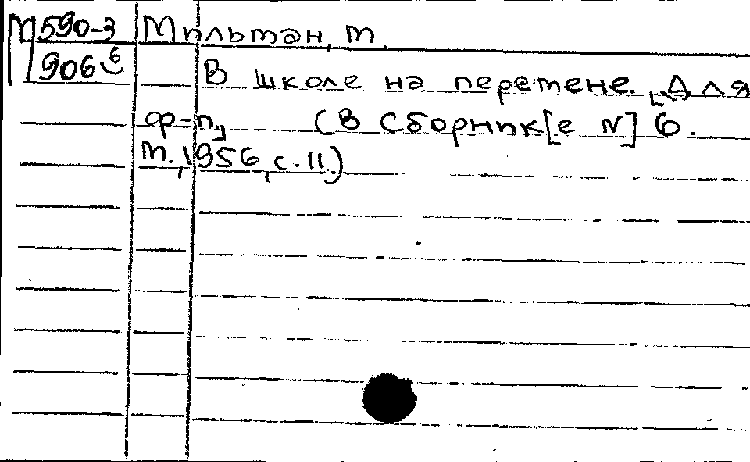 М590-3
906б
Мильман, М.
В школе на перемене. [Для
ф-п.] (В Сборник[е №] 6.
М., 1956, с. 11.)